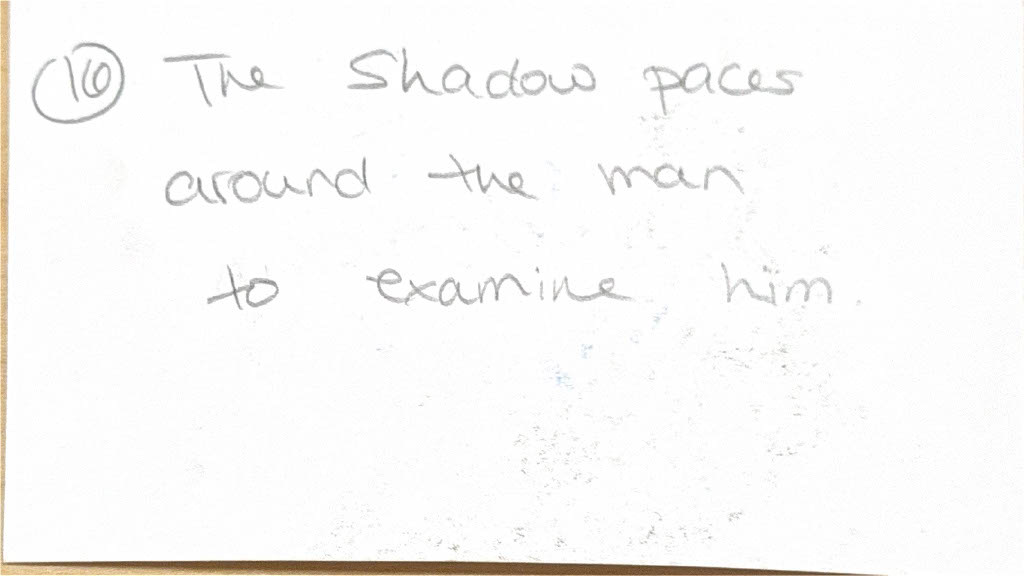 16 The Shadow paces
around the man
to examine him.